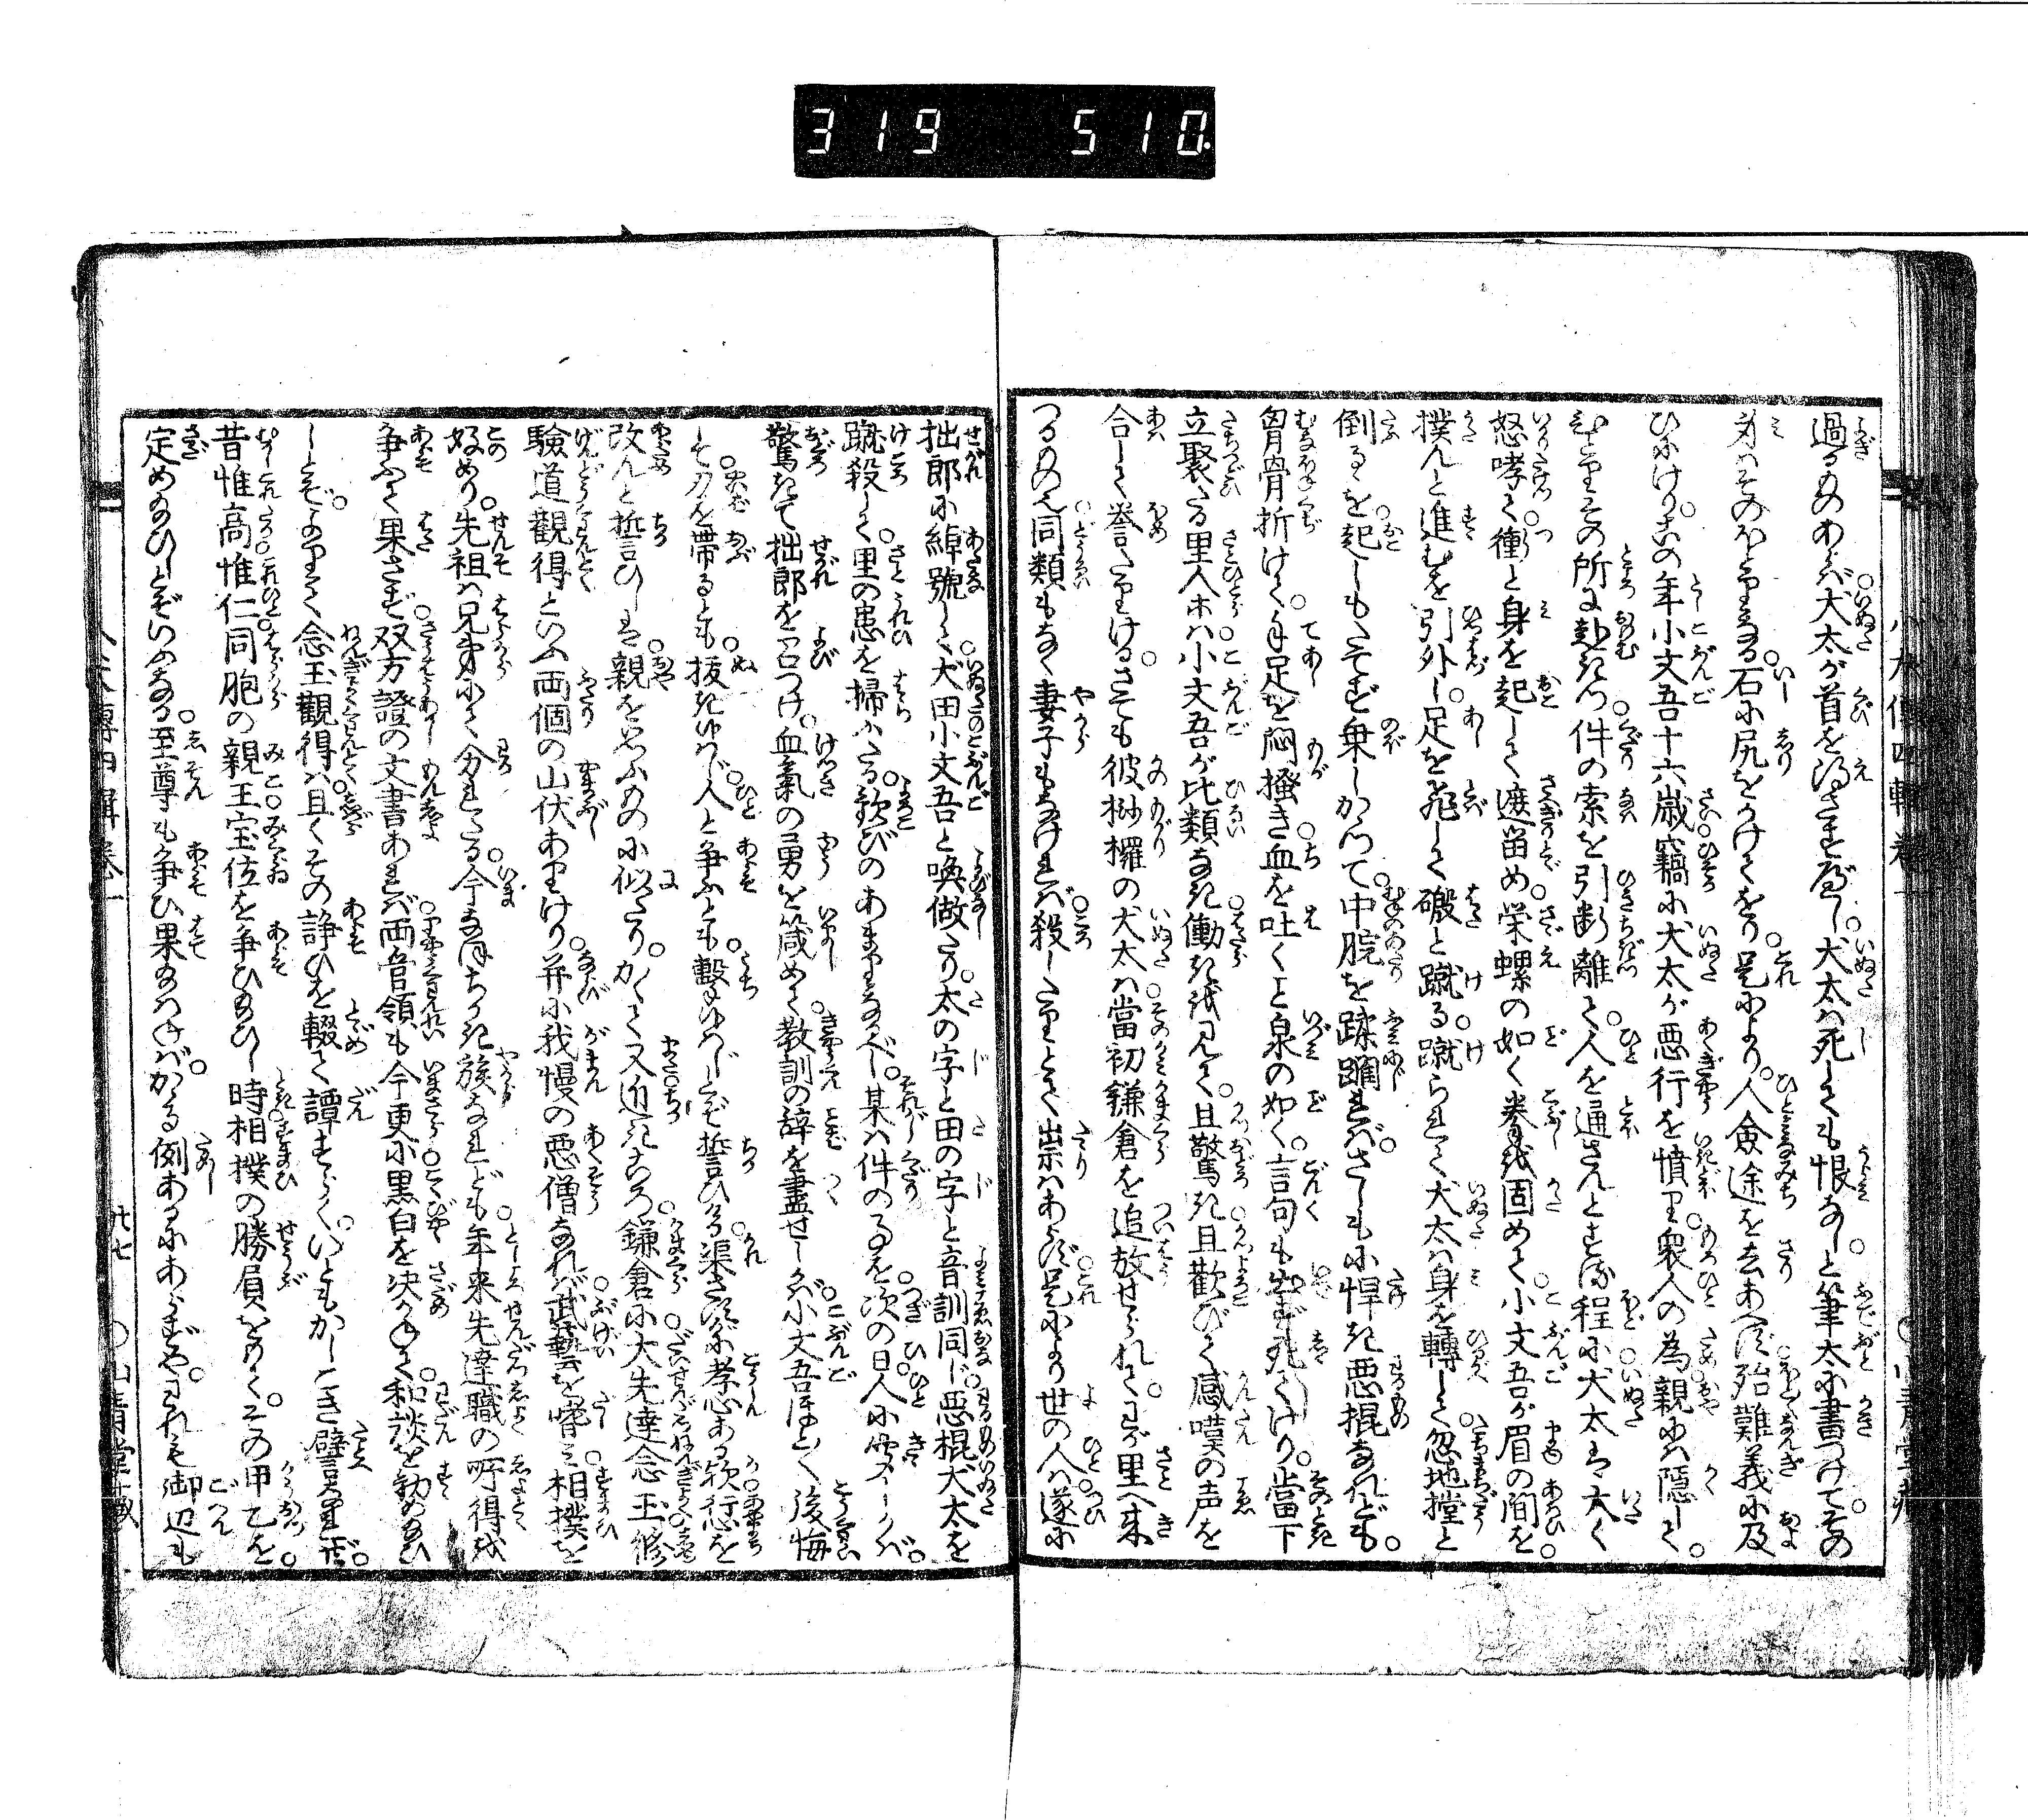 319 510
過るものあらば犬太が首を得させまじ。犬太は死しても恨なしと筆太に書つけて。その
身はそのほとりなる。石に尻をうけてをり。是により。人僉途を去あへず。殆難義に及
ひにけり。この年小文吾十六歳。竊に犬太が悪行を憤り。衆人の為。親には隠して。
ひとりその所に赴きつ。件の索を引断離て。人を通さんとする程に。犬太は大く
怒哮て。衝と身を起して遮留め。栄螺の如く拳を固めて。小文吾が眉の間を。
撲んと進むを引外し。足を飛して礑と蹴る。蹴られて犬太は身を轉して。忽地撞と
倒るゝを。起しもたてず乗しかゝつて。中脘を踩躙れば。さしもに悍き悪棍なれども。
胷骨折けて。手足を悶掻き。血を吐くこと泉の如く。言句も出ず死てけり。當下
立聚たる里人ホは。小文吾が比類なき働きを見て。且驚き且歡びて。感嘆の声を
合して誉たりける。さても彼栁欏の犬太は。當初鎌倉を追放せられて。わが里へ来
つるものゝ。同類もなく妻子もなければ。殺したりとて祟はあらず。是より世の人は遂に
拙郎に綽號して。犬田小文吾と喚做たり。太の字と田の字と音訓同じ。悪棍犬太を
蹴殺して。里の患を掃ふたる。歡びのあまりなるべし。某は件の事を。次の日人に聞しかば。
驚きて拙郎を召つけ。血氣の勇を箴めて。教訓の辞を盡せしかば。小文吾ほとほと後悔
して。刃を帯るとも。抜きゆかじ。人と争ふとも。毄ゆかじとぞ誓ひける。渠さすがに孝心ある欤。行を
改んと誓ひしは。親を思ふものに似たり。かくて又近きころ。鎌倉に大先達。念玉。修
驗道觀得といふ。両個の山伏ありけり。并に我慢の悪僧なれば。武藝を嗜み。相撲を
好めり。先祖は兄弟にて。分れたる。今なほちかき族なれども。年来先達職の所得を
争ふて果さず。双方證の文書あれば。両管領も今更に黒白を决かねて。和談を勧め給ひ
しとぞ。よりて念玉觀得は。且くその諍ひを輟て譚ずらく。いともかしこき譬なれど。
昔惟高惟仁。同胞の親王。宝位を争ひ給ひし時。相撲の勝負をもて。その甲乙を
定め給ひしとぞいふなる。至尊も争ひ果給はねば。かゝる例あるにあらずや。われも御辺も
八犬傳四輯巻一
廿七
○山青堂藏